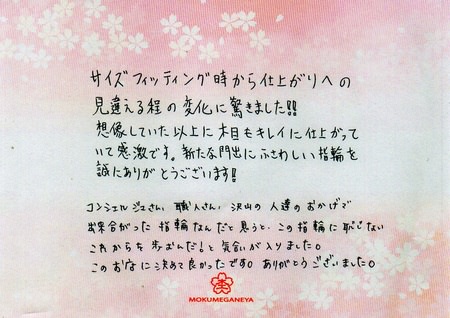 サイズフィッティング時から仕上がりへの
見違える程の変化に驚きました!!
想像していた以上に木目もキレイに仕上がって
いて感激です。新たな門出にふさわしい指輪を
誠にありがとうございます!
コンシェルジュさん、職人さん、沢山の人達のおかげで
出来合がった指輪なんだと思うと、この指輪に恥じない
これからを歩むんだ!と気合いが入りました。
このお店に決めて良かったです。ありがとうございました。
MOKUMEGANEYA